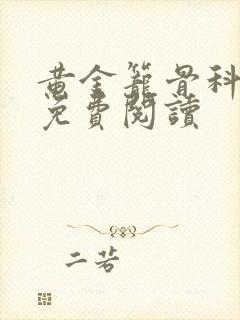 黄金籠骨科
免費閱讀
二苦